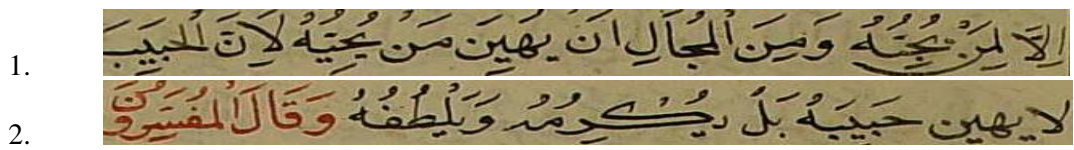 1. اِلَّا لِمَنْ يُحِبُّهُ وَمِنَ الْمُحَالِ اَنْ يُهِينَ مَنْ يُحِبُّهُ لِاَنَّ الْحَبِيبَ
2. لا يهين حَبِيبَهُ بَلْ يُكْرِمُهُ وَيَلْطُفُهُ وَقَالَ الْمُفَسِّرُونَ